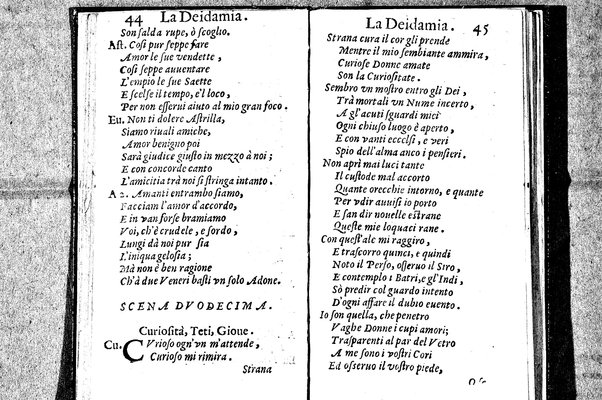 44 La Deidamia.
Son salda rupe, ò scoglio.
Ast. Così pur seppe fare
Amor le sue vendette,
Così seppe auuentare
L'empio le sue Saette
E scelse il tempo, e'l loco,
Per non esserui aiuto al mio gran foco.
Eu. Non ti dolere Astrilla,
Siamo riuali amiche,
Amor benigno poi
Sarà giudice giusto in mezzo à noi;
E con concorde canto
L'amicitia trà noi si stringa intanto.
A 2. Amanti entrambo siamo,
Facciam l'amor d'accordo,
E in van forse bramiamo
Voi, ch'è crudele, e sordo,
Lungi dà noi pur sia
L'iniqua gelosia;
Mà non è ben ragione
Ch'à due Veneri basti vn solo Adone.
SCENA DVODECIMA.
Curiosità, Teti, Gioue.
Cu. CVrioso ogn'vn m'attende,
Curioso mi rimira.
Strana
La Deidamia. 45
Strana cura il cor gli prende
Mentre il mio sembiante ammira,
Curiose Donne amate
Son la Curiositate.
Sembro vn mostro entro gli Dei,
Trà mortali vn Nume incerto,
A gl'acuti sguardi miei
Ogni chiuso luogo è aperto,
E con vanti eccelsi, e veri
Spio dell'alma anco i pensieri.
Non aprì mai luci tante
Il custode mal accorto
Quante orecchie intorno, e quante
Per vdir auuisi io porto
E fan dir nouelle estrane
Queste mie loquaci rane.
Con quest'ale mi raggiro,
E trascorro quinci, e quindi
Noto il Perso, osseruo il Siro,
E contemplo i Batri, e gl'Indi,
Sò predir col guardo intento
D'ogni affare il dubio euento.
Io son quella, che penetro
Vaghe Donne i cupi amori;
Trasparenti al par del Vetro
A me sono i vostri Cori
Ed osseruo il vostro piede,